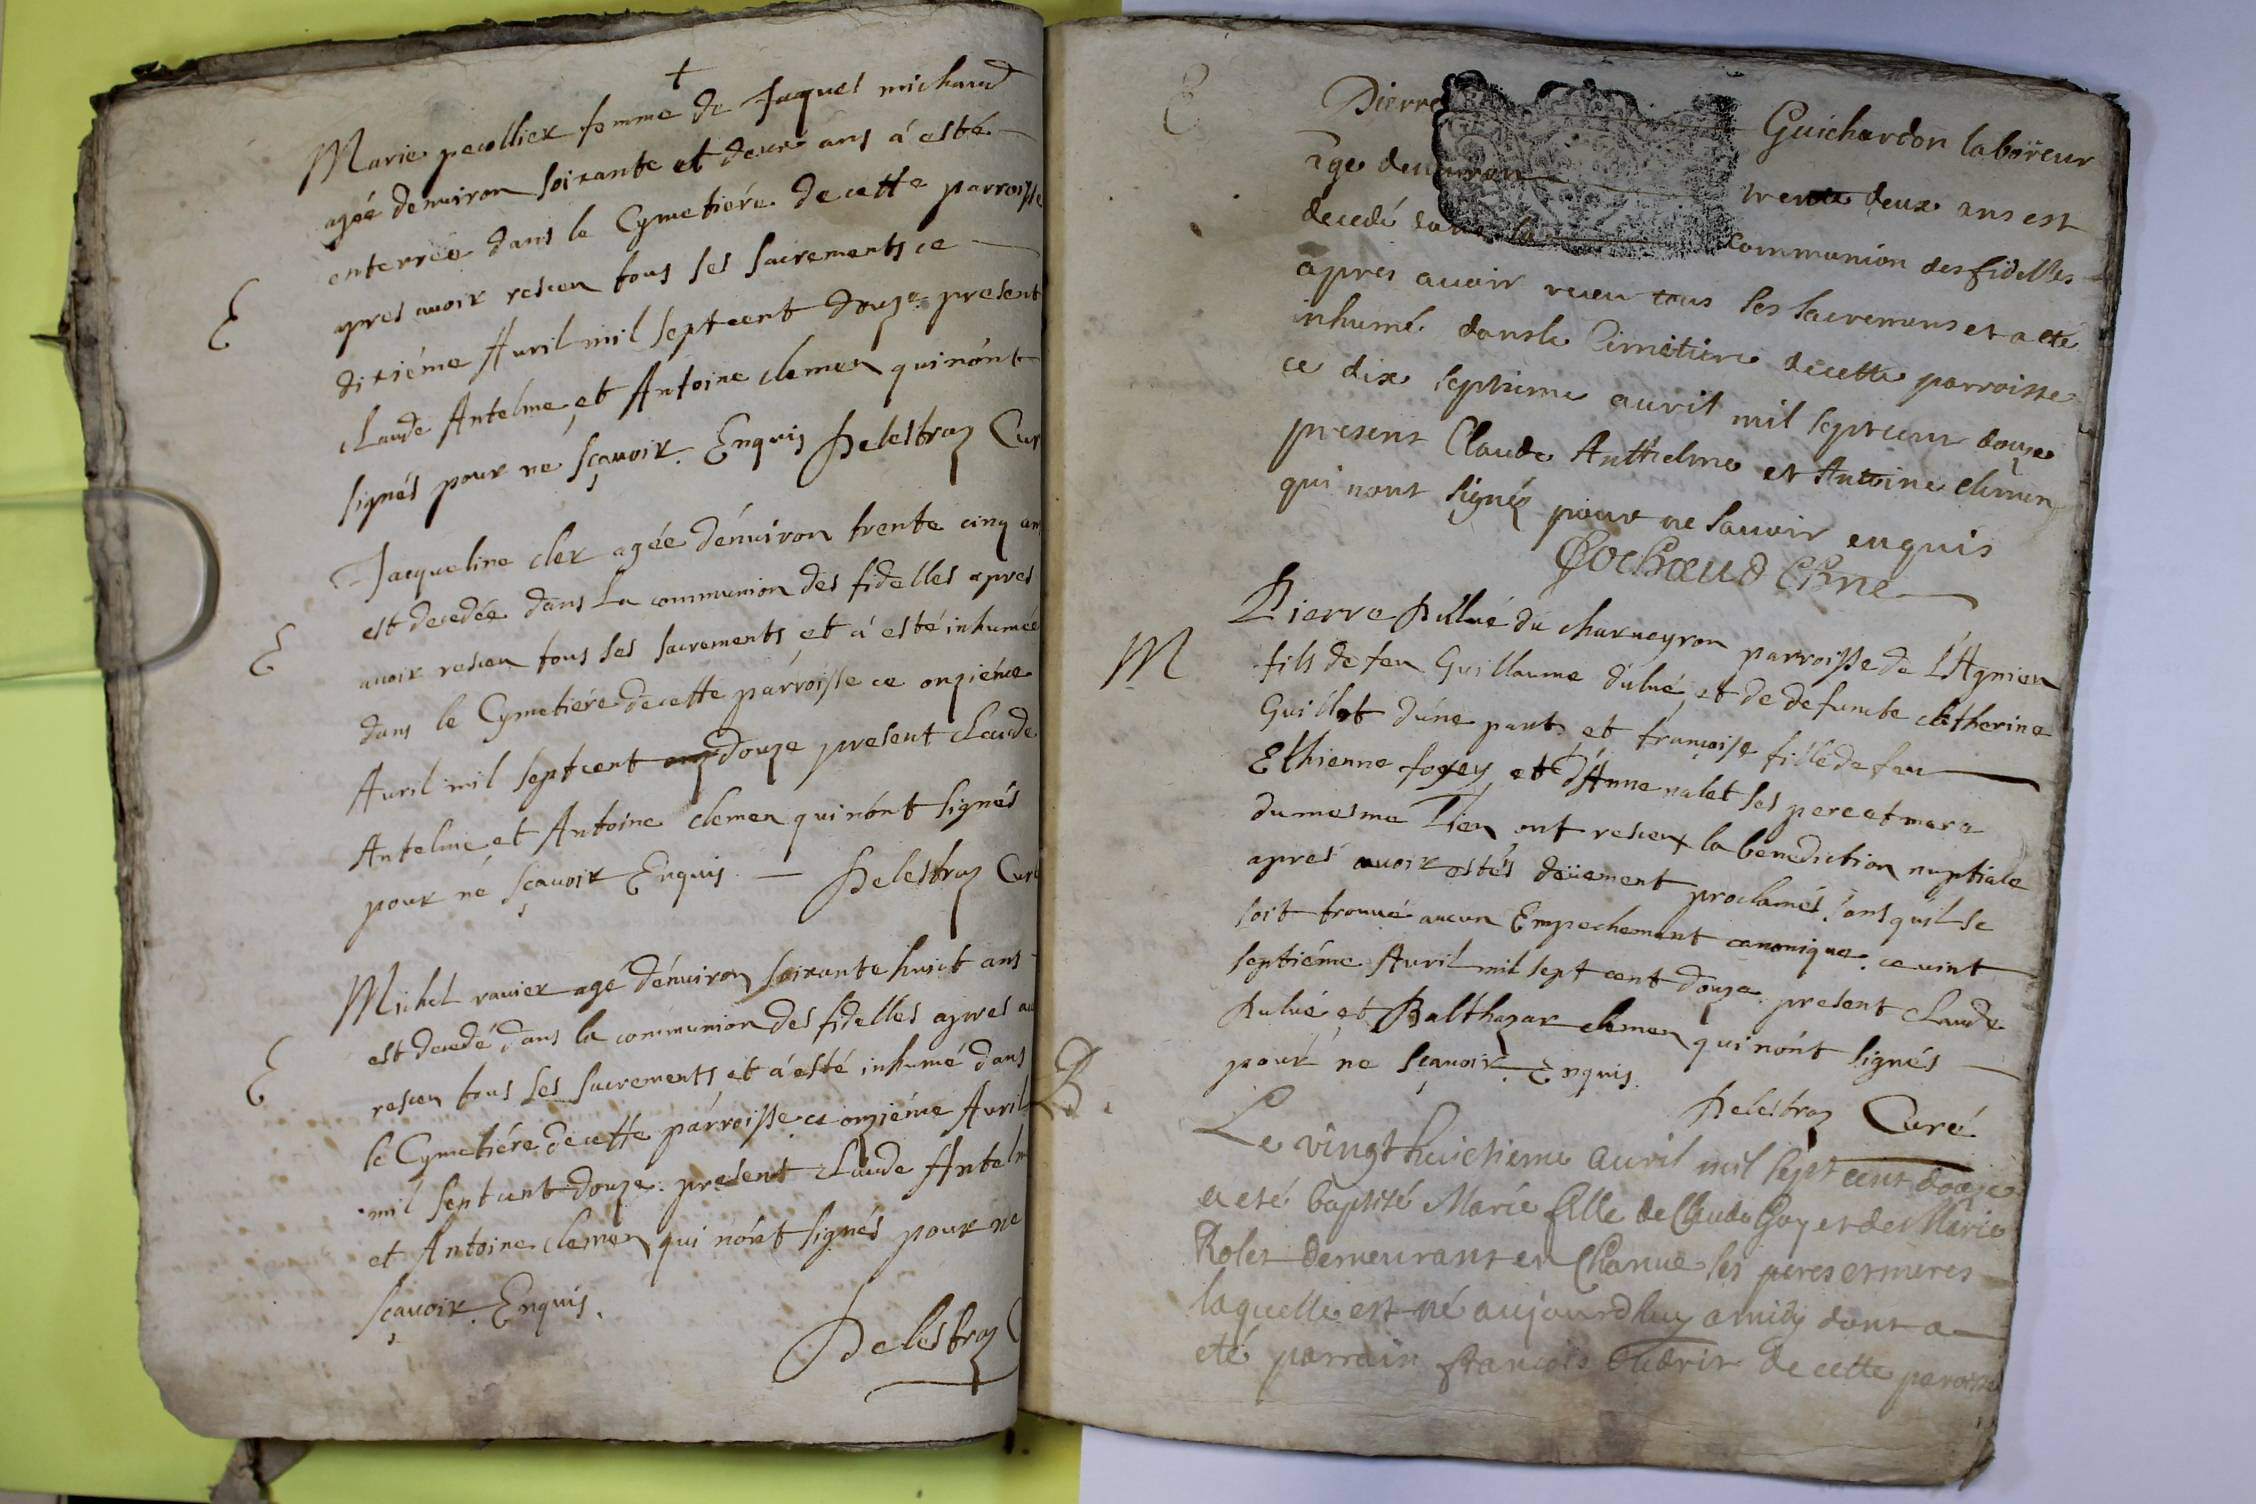 +
Marie pecollier femme de Jaques michaud
agée denuiron soixante et deux ans á esté
enterrée dans le Cymetiére de cette parroisse
E
apres auoir reseu tous ses sacrements ce
dixiéme Auril mil sept cent douze present
claude Antelme et Antoine clemen qui nónt
signés pour ne sçauoir. Enquis Delestraz Cur
Jacqueline cler agée dénuiron trente cinq an
est decedée dans La communion des fidelles apres
E
auoir reseu tous ses sacrements et á esté inhumée
dans le Cymetiére de cette parroisse ce onziéme
Auril mil sept cent douze present claude
Antelme et Antoine clemen qui nónt signés
pour né sçauoir Enquis Delestraz Curé
Michel rauier agé dénuiron soixante huict ans
est decedé dans la communion des fidelles apres au
E
reseu tous ses sacrements et á esté inhumé dans
le Cymetiére de cette parroisse ce onziéme Auril
mil sept cent douze present claude Antelm
et Antoine clemen qui nónt signés pour ne
sçauoir Enquis.
Delestraz C
E
Pierre Guichardon laboureur
age denuiron trente deux ans est
decedé dans la communion des fidelles
apres auoir receu tous les sacremens et a eté
inhumé dans le Cimetiere decette parroisse
ce dix septieme auril mil sept cent douze
present Claude Anthelme et Antoine clemen
qui nont signéz pour ne sauoir enquis
M
Pierre Dulué du charueyron parroisse de L'Agnieu
fils de feu Guillaume dulué et de defuncte catherine
Guillot d'úne part et françoise fille de feu
Ethienne et D'Anne nalet ses pere et mere
du mesme Lieu ont reseux la benediction nuptiale
apres auoir estés deüement proclamés sans quil se
soit trouué aucun Empechement canonique ce uint
septiéme Auril mil sept cent douze present claude
Dulué et Balthazar clemen qui nónt signés
pour ne sçauoir Enquis.
Delestraz Curé
B.
Le vingt huictieme auril mil sept cent douze
a eté baptisé Marie fille de Claude Goy et de Marie
Rolet demeurant en Charue ses peres et meres
laquelle est né aujourdhuy a midy dont a
eté parrain francois de cette paroisse